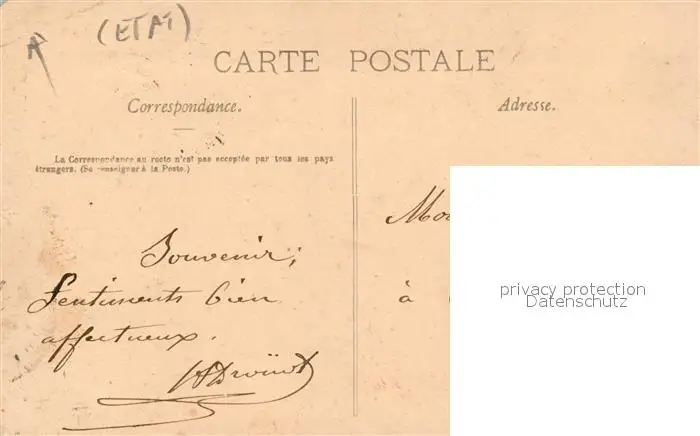 (ETAT)
A
CARTE POSTALE
Correspondance.
La Correspondance au recto n'est pas acceptée par tous les pays
étrangers. (Se renseigner à la Poste.)
Souvenir;
Sentiments bien
affectueux.
Adresse.
à
privacy protection
Datenschutz